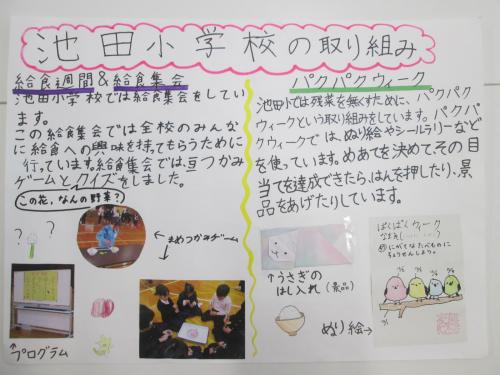 池田小学校の取り組み
給食週間&給食集会
池田小学校では給食集会をしてい
ます。
この給食集会では全校のみんな
に給食への興味を持ってもらうために
行っています。給食集会では、豆つかみ
ゲームとクイズをしました。
この花、なんの野菜?
?
?
←まめつかみゲーム
↑プログラム
パクパクウィーク
池田小では残菜を無くすために、パクパク
ウィークという取り組みをしています。パクパ
クウィークでは、ぬり絵やシールラリーなど
を使っています。めあてを決めてその目
当てを達成できたら、はんを押したり、景
品をあげたりしています。
↑うさぎの
はし入れ(景品)
ぬり絵→
ぱくぱくウィーク
にがてなたべものに
ちょうせんしよう。